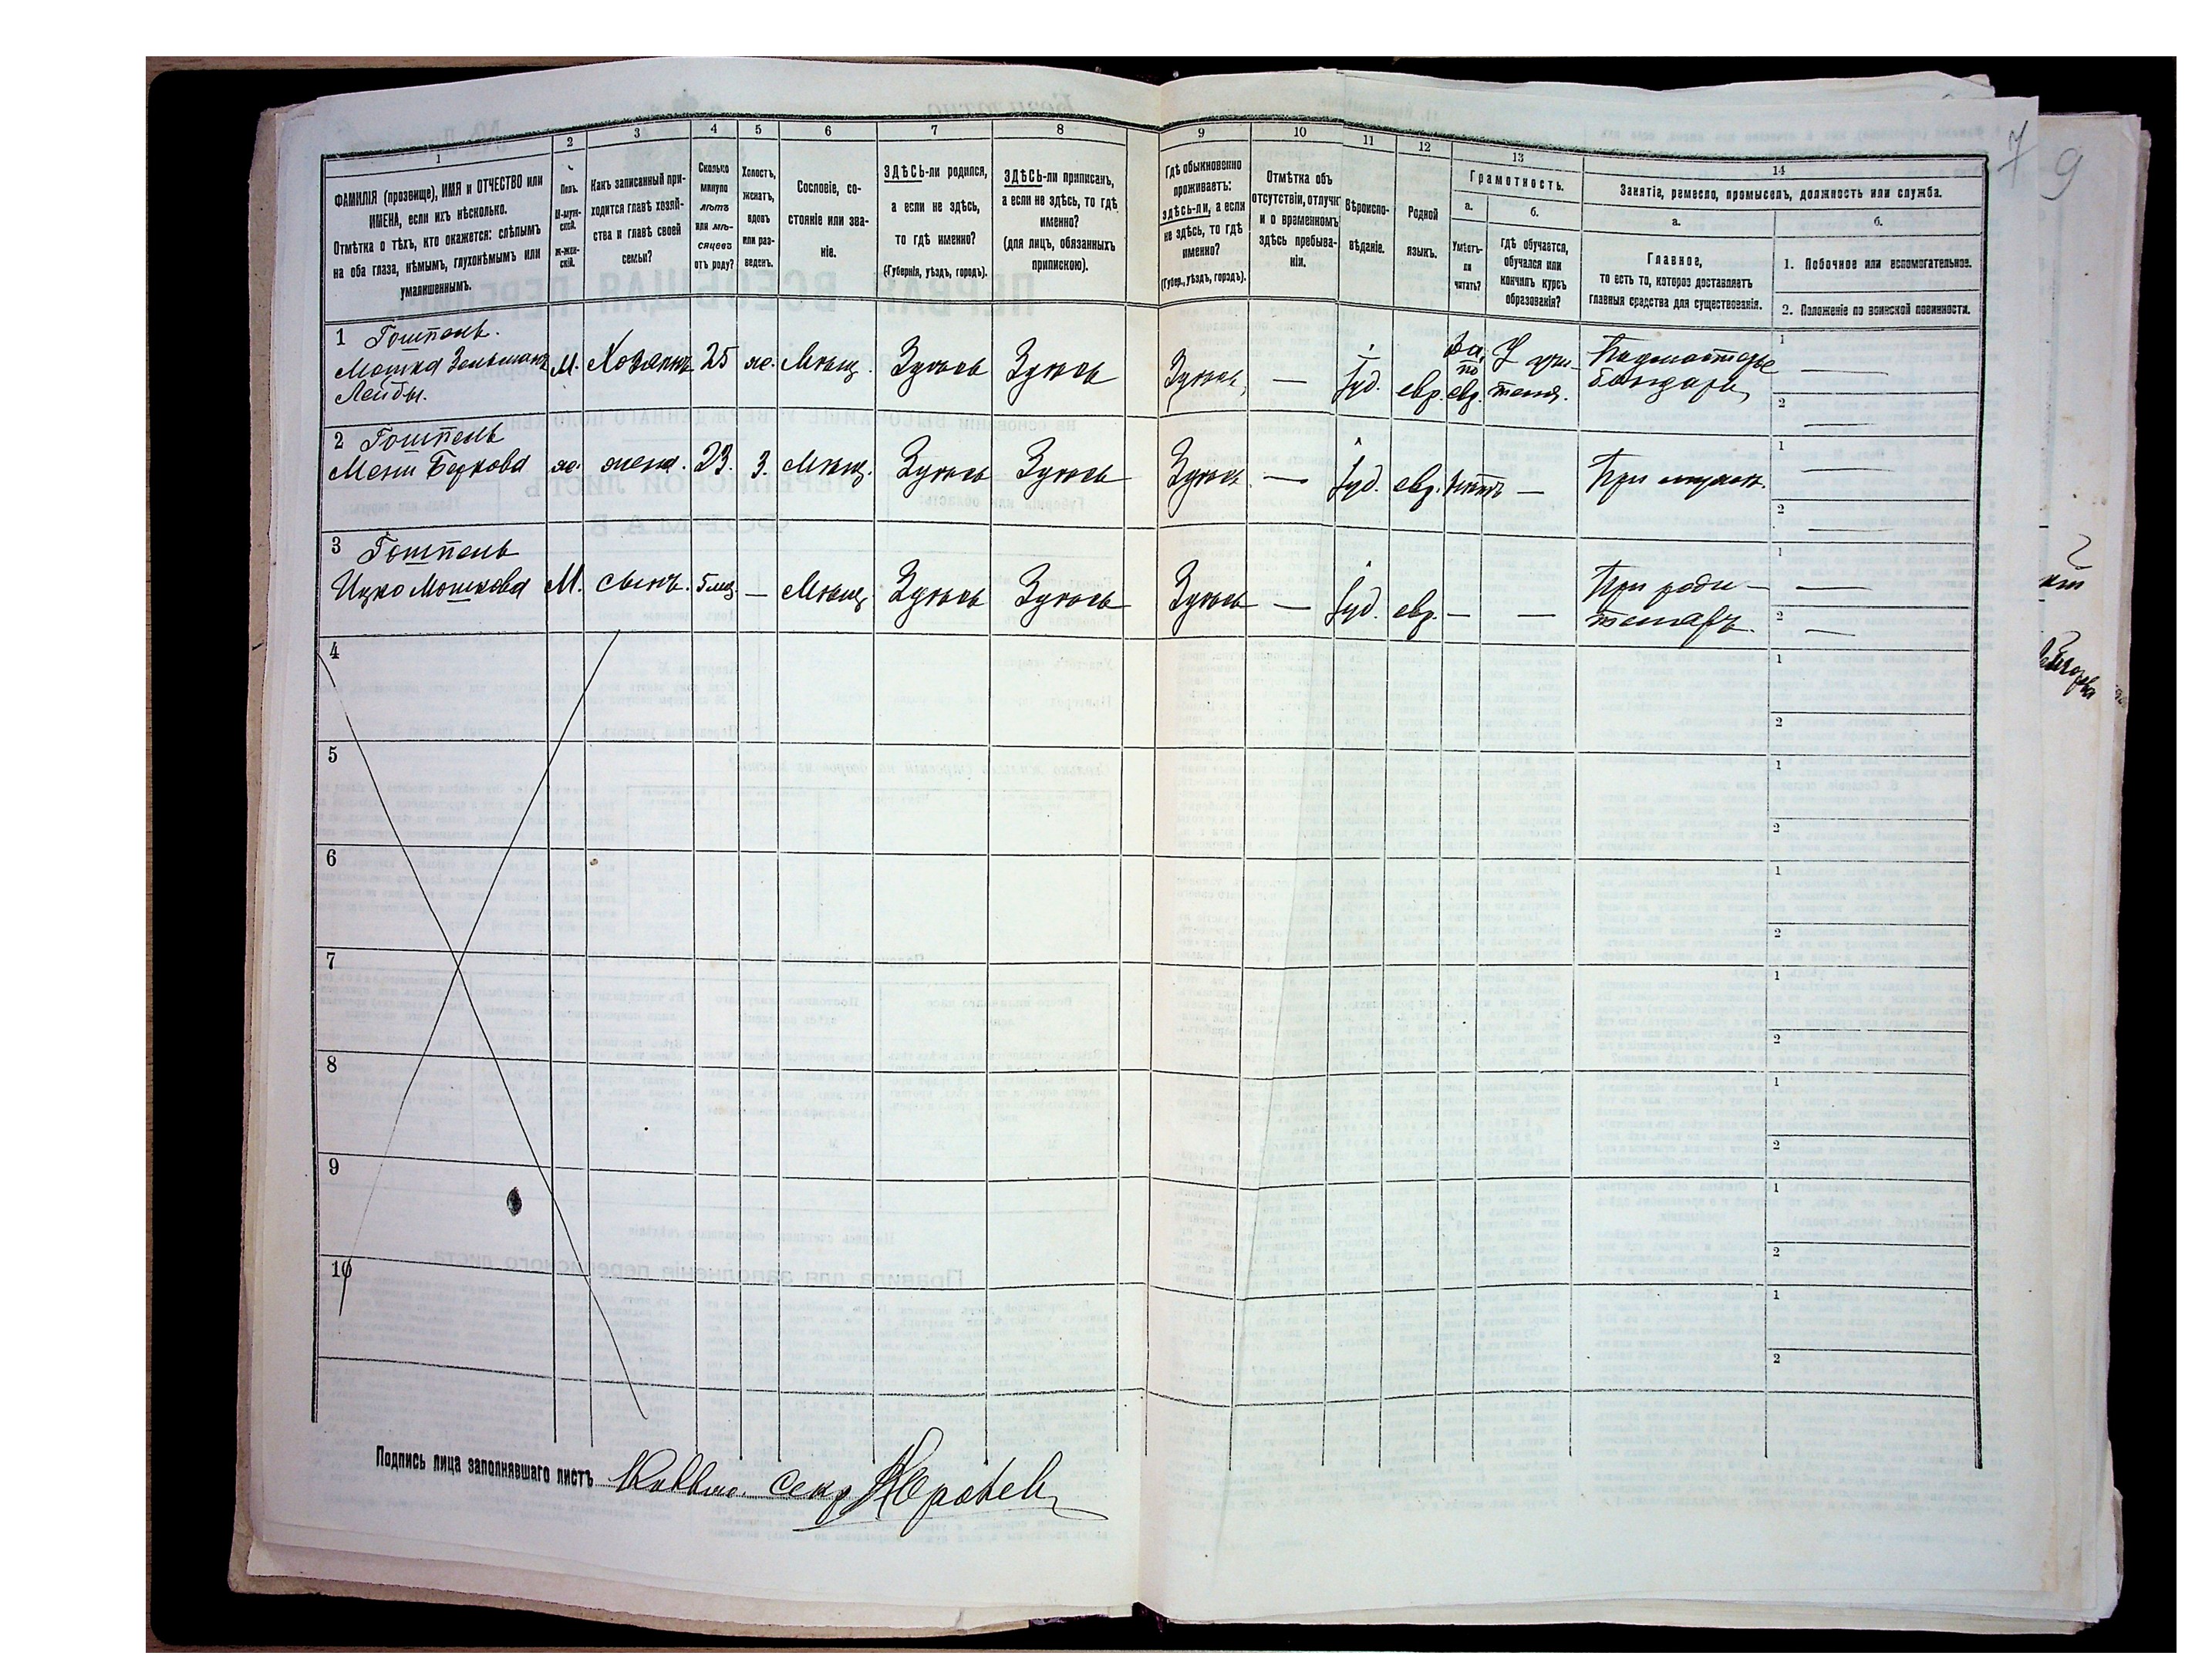 7 9
1 2 3 4 5 6 7 8 9 10 11 12 13 14
ФАМИЛІЯ (прозвище), ИМЯ и ОТЧЕСТВО или
ИМЕНА, если ихъ нѣсколько.
Отмѣтка о тѣхъ, кто окажется: слѣпымъ
на оба глаза, нѣмымъ, глухонѣмымъ или
умалишеннымъ.
Полъ.
М-муж-
ской.
Ж-жен-
скій.
Какъ записанный при-
ходится главѣ хозяй-
ства и главѣ своей
семьи?
Сколько
минуло
лѣтъ
или мѣ-
сяцевъ
отъ роду?
Холостъ,
женатъ,
вдовъ
или раз-
веденъ.
Сословіе, со-
стояніе или зва-
ніе.
ЗДѢСЬ-ли родился,
а если не здѣсь,
то гдѣ именно?
(Губернія, уѣздъ, городъ).
ЗДѢСЬ-ли приписанъ,
а если не здѣсь, то гдѣ
именно?
(для лицъ, обязанныхъ
припискою).
Гдѣ обыкновенно
проживаетъ:
здѣсь-ли, а если
не здѣсь, то гдѣ
именно?
(Губер., уѣздъ, городъ).
Отмѣтка объ
отсутствіи, отлучкѣ
и о временномъ
здѣсь пребыва-
ніи.
Вѣроиспо-
вѣданіе.
Родной
языкъ.
Грамотность.
а.
Умѣетъ-
ли
читать?
б.
гдѣ обучается,
обучался или
кончилъ курсъ
образованія?
Занятія, ремесло, промыселъ, должность или служба.
а.
Главное,
то есть то, которое доставляетъ
главныя средства для существованія.
б.
1. Побочное или вспомогательное.
2. Положеніе по воинской повинности.
1 Гоштель.
Мошка Зельманъ
Лейбы.
М. Хозяинъ 25 ж. Мѣщ. Здѣсь Здѣсь Здѣсь —
Іуд. евр. да, по евр. У учи-
теля.
бондаря
1 —
2 —
2 Гоштель
Мени Беркова ж. жена. 23. З. Мѣщ. Здѣсь Здѣсь Здѣсь — Іуд. евр. нѣтъ — При мужѣ.
1 —
2 —
3 Гоштель
Ицко Мошкова М. сынъ. 5 мѣс. — Мѣщ. Здѣсь Здѣсь Здѣсь — Іуд. евр. — — При роди-
теляхъ.
1 —
2 —
4
1
2
5
1
2
6
1
2
7
1
2
8
1
2
9
1
2
10
1
2
Подпись лица заполнявшаго листъ